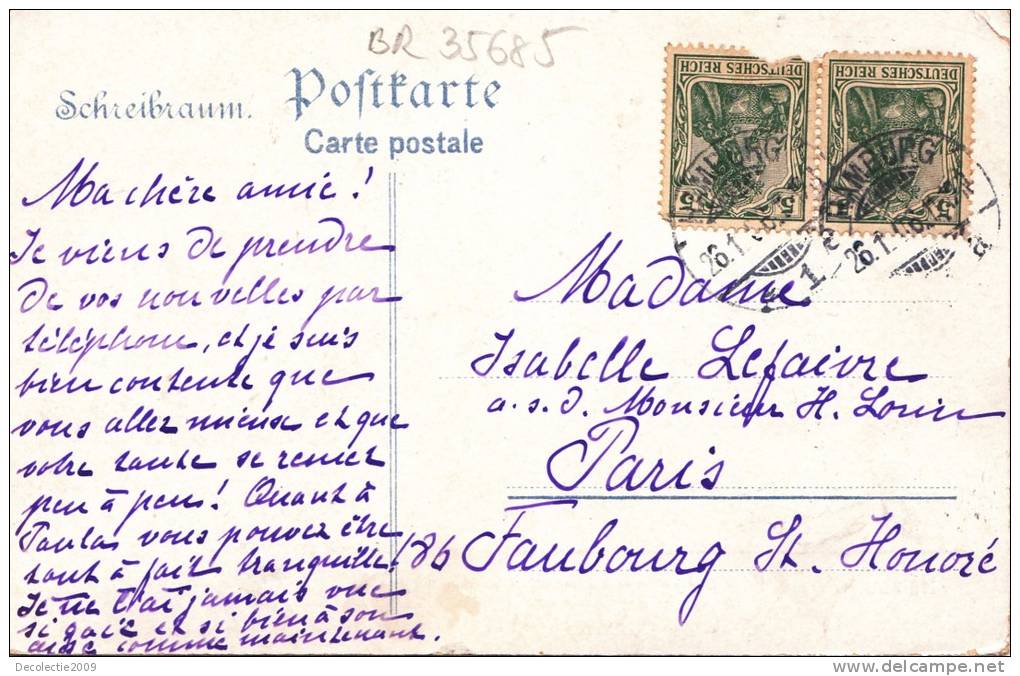 BR 35685
Schreibraum.
Postkarte
Carte postale
DEUTSCHES REICH
DEUTSCHES REICH
5 5
5
HAMBURG
HAMBURG
26.1.06
26.1.06
1
Ma chère amie!
Je viens de prendre
de vos nouvelles par
téléphone, et je suis
bien contente que
vous allez mieux et que
votre santé se remet
peu à peu! Quant à
vous pouvez être
tout à fait tranquille!
Je ne l'ai jamais vue
si gaie et si bien à son
aise comme maintenant.
Madame
Isabelle Lefaivre
a.s.d. Monsieur H. Louin
Paris
186 Faubourg St. Honoré
Decolectie2009
delcampe.net